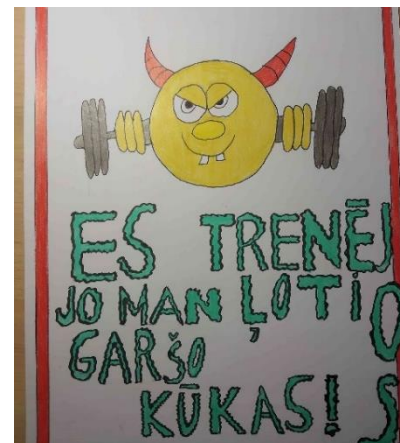 ES TRENĒJOS
JO MAN ĻOTI
GARŠO
KŪKAS!